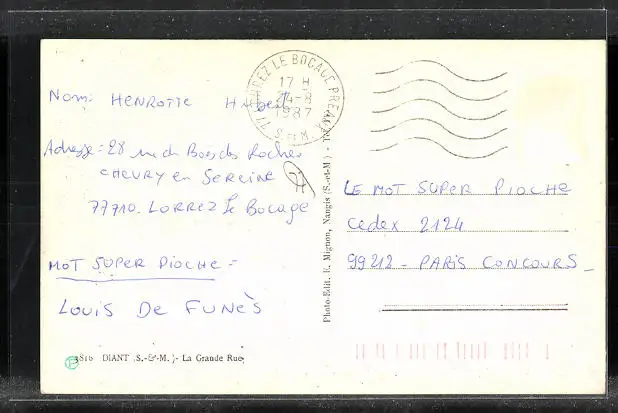 77 LORREZ LE BOCAGE PREAUX
17 H
24-8
1987
S. ET M.
Nom: HENROTTE Hubert
Adresse: 28 rue du Bois des Roches
CHEVRY en SEREINE
77
77710. LORREZ le Bocage
MOT SUPER PIOCHE =
LOUIS DE FUNÈS
3816 DIANT (S.-&-M.) - La Grande Rue
Photo-Edit. E. Mignon, Nangis (S.-et-M.)
LE MOT SUPER PIOCHE
Cedex 2124
99212 - PARIS CONCOURS